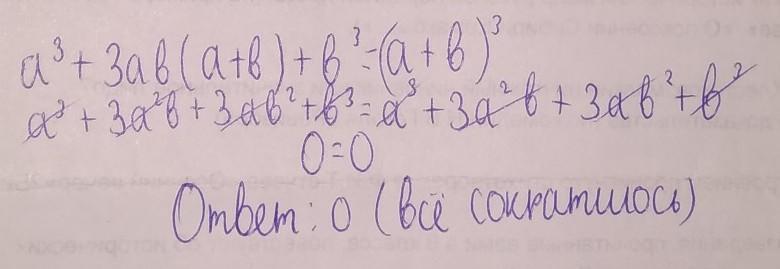 a³ + 3ab(a+b) + b³ = (a+b)³
a³ + 3a²b + 3ab² + b³ = a³ + 3a²b + 3ab² + b³
0=0
Ответ: 0 (всё сократилось)